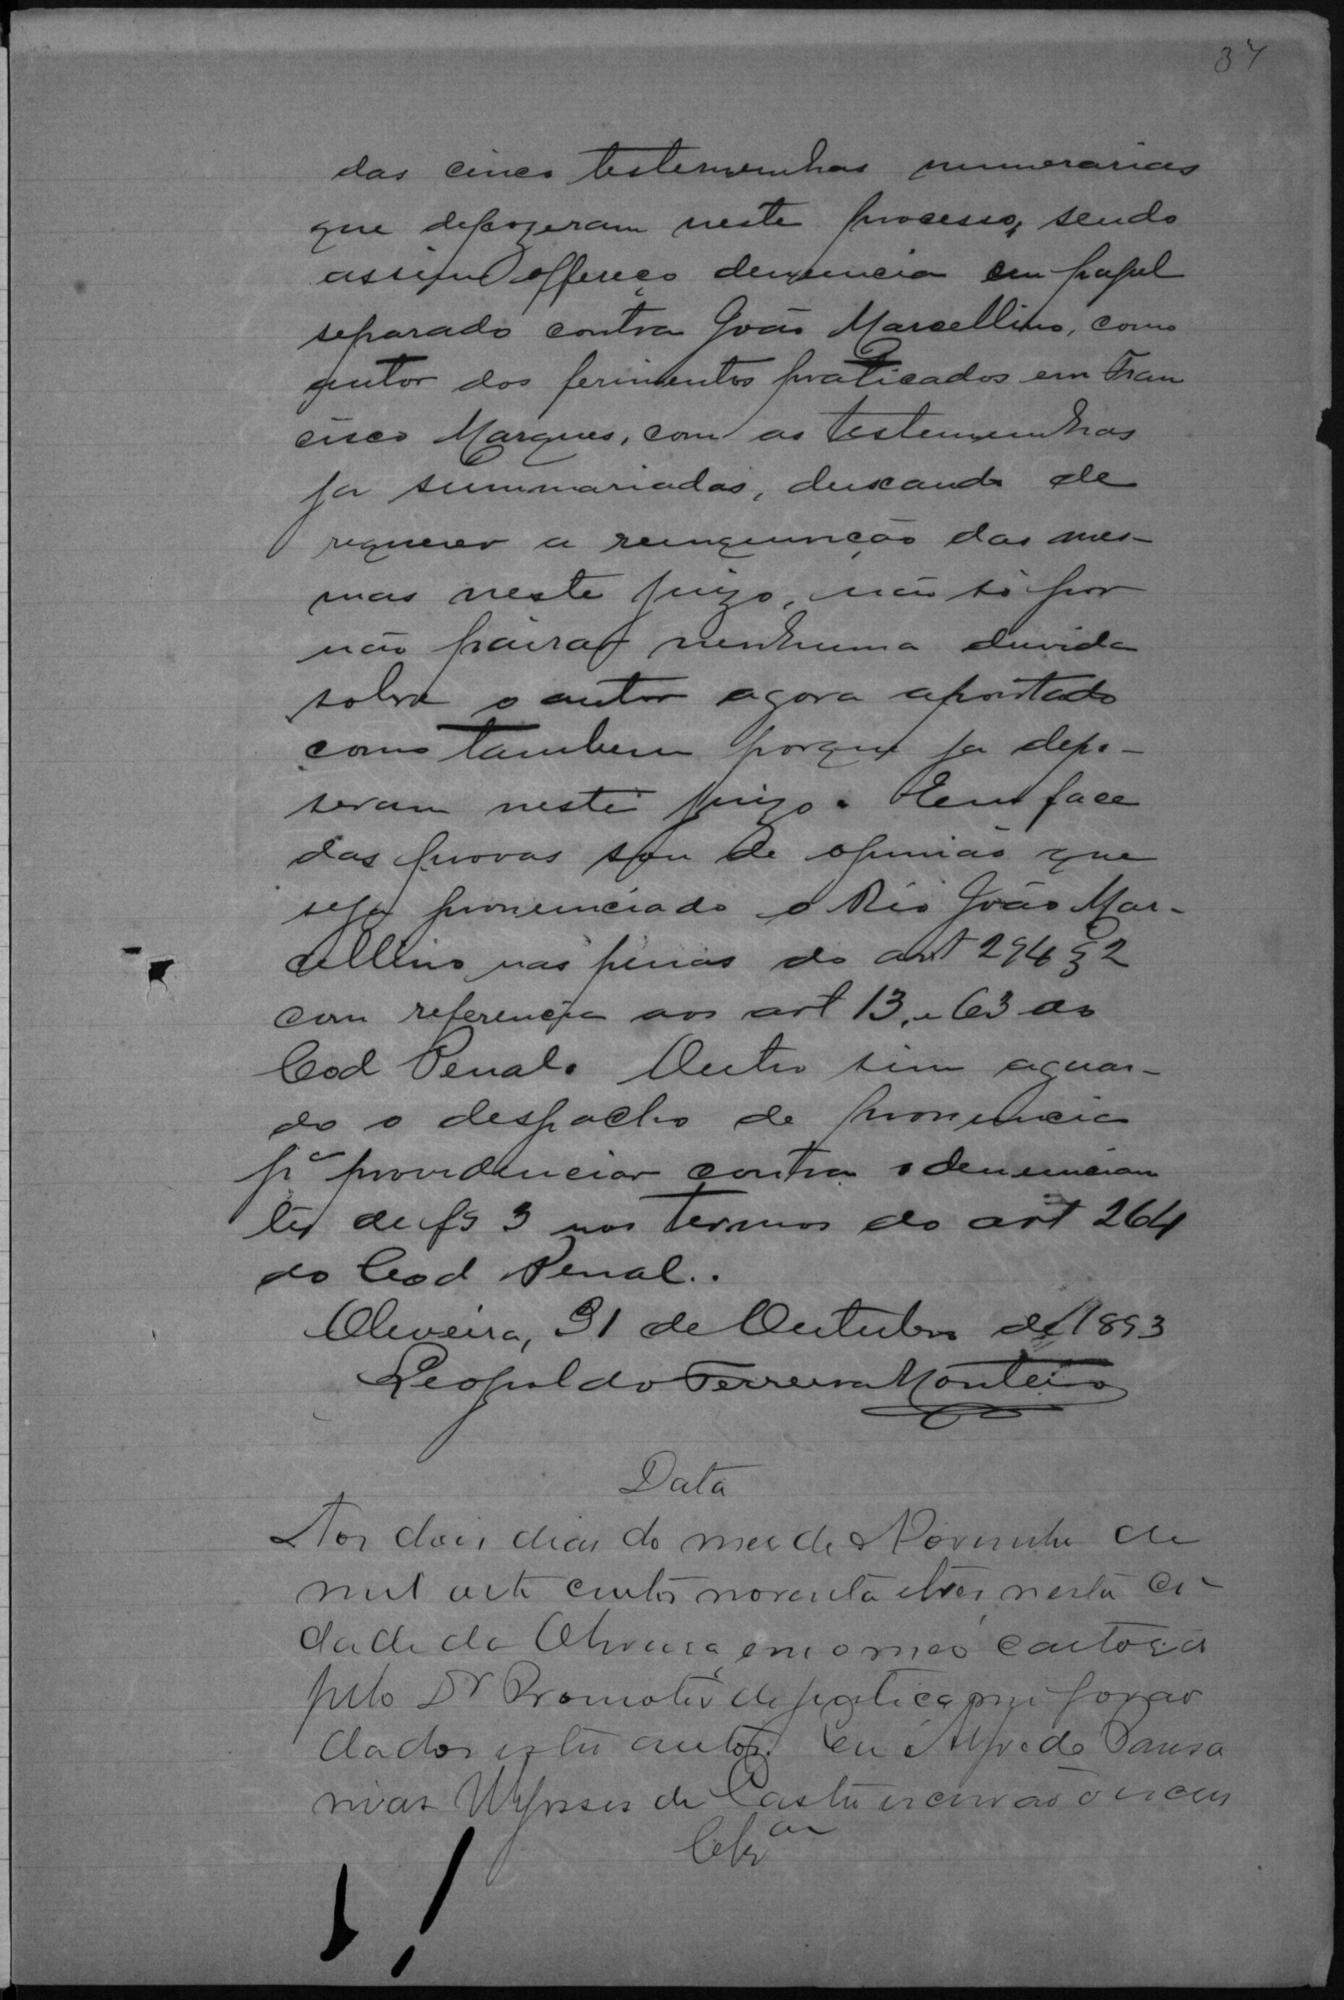 37
das cinco testemunhas numerarias
que depozeram neste processo, sendo
assim offereço denuncia em papel
separado contra João Marcellino, como
autor dos ferimentos praticados em Fran
cisco Marques, com as testemunhas
ja summariadas, deixando de
requerer a reinquirição das mes-
mas neste juizo, não só por
não pairar nenhuma duvida
sobre o autor agora apontado
como tambem porque ja depo-
seram neste juizo. Em face
das provas sou de opinião que
seja pronunciado o Réo João Mar-
cellino nas penas do art 294 § 2
com referencia aos art 13, e 63 do
Cod Penal. Outro sim aguar-
do o despacho de pronuncia
pª providenciar contra o denuncian
te de fs 3 nos termos do art 264
do Cod Penal..
Oliveira, 31 de Outubro de 1893
Leopoldo Ferreira Monteiro
Data
Aos dois dias do mes de Novembro de
mil oito centos noventa e tres nesta ci-
dade da Oliveira, em o meo cartorio
pelo Dr Promotor de justiça me forão
dados estes autos. Eu Alfredo Pausa
nias Ulysses de Castro escrivão o escrevi
Clzam